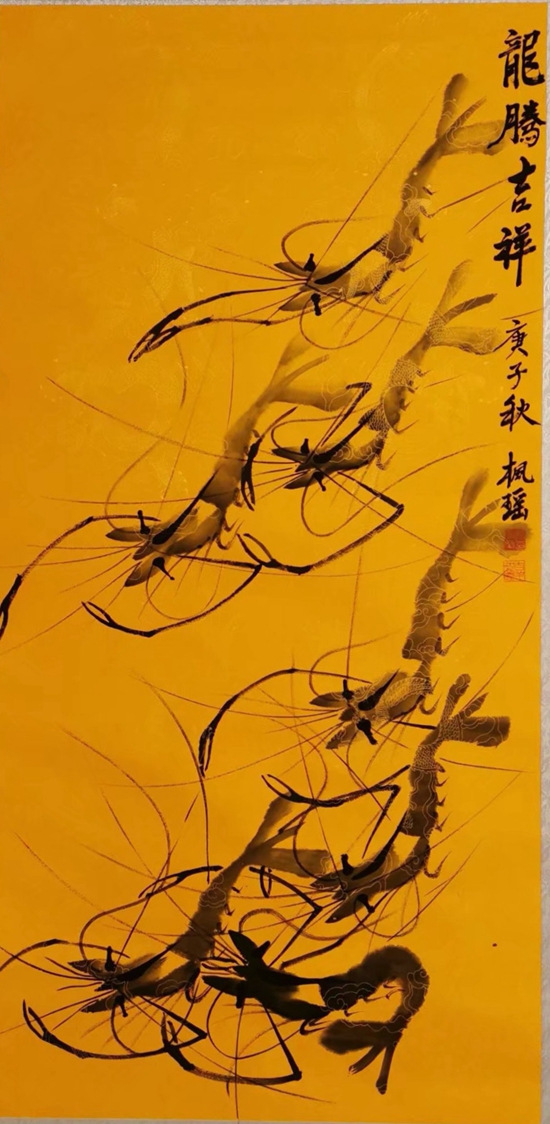 龍騰吉祥
庚子秋 楓瑶